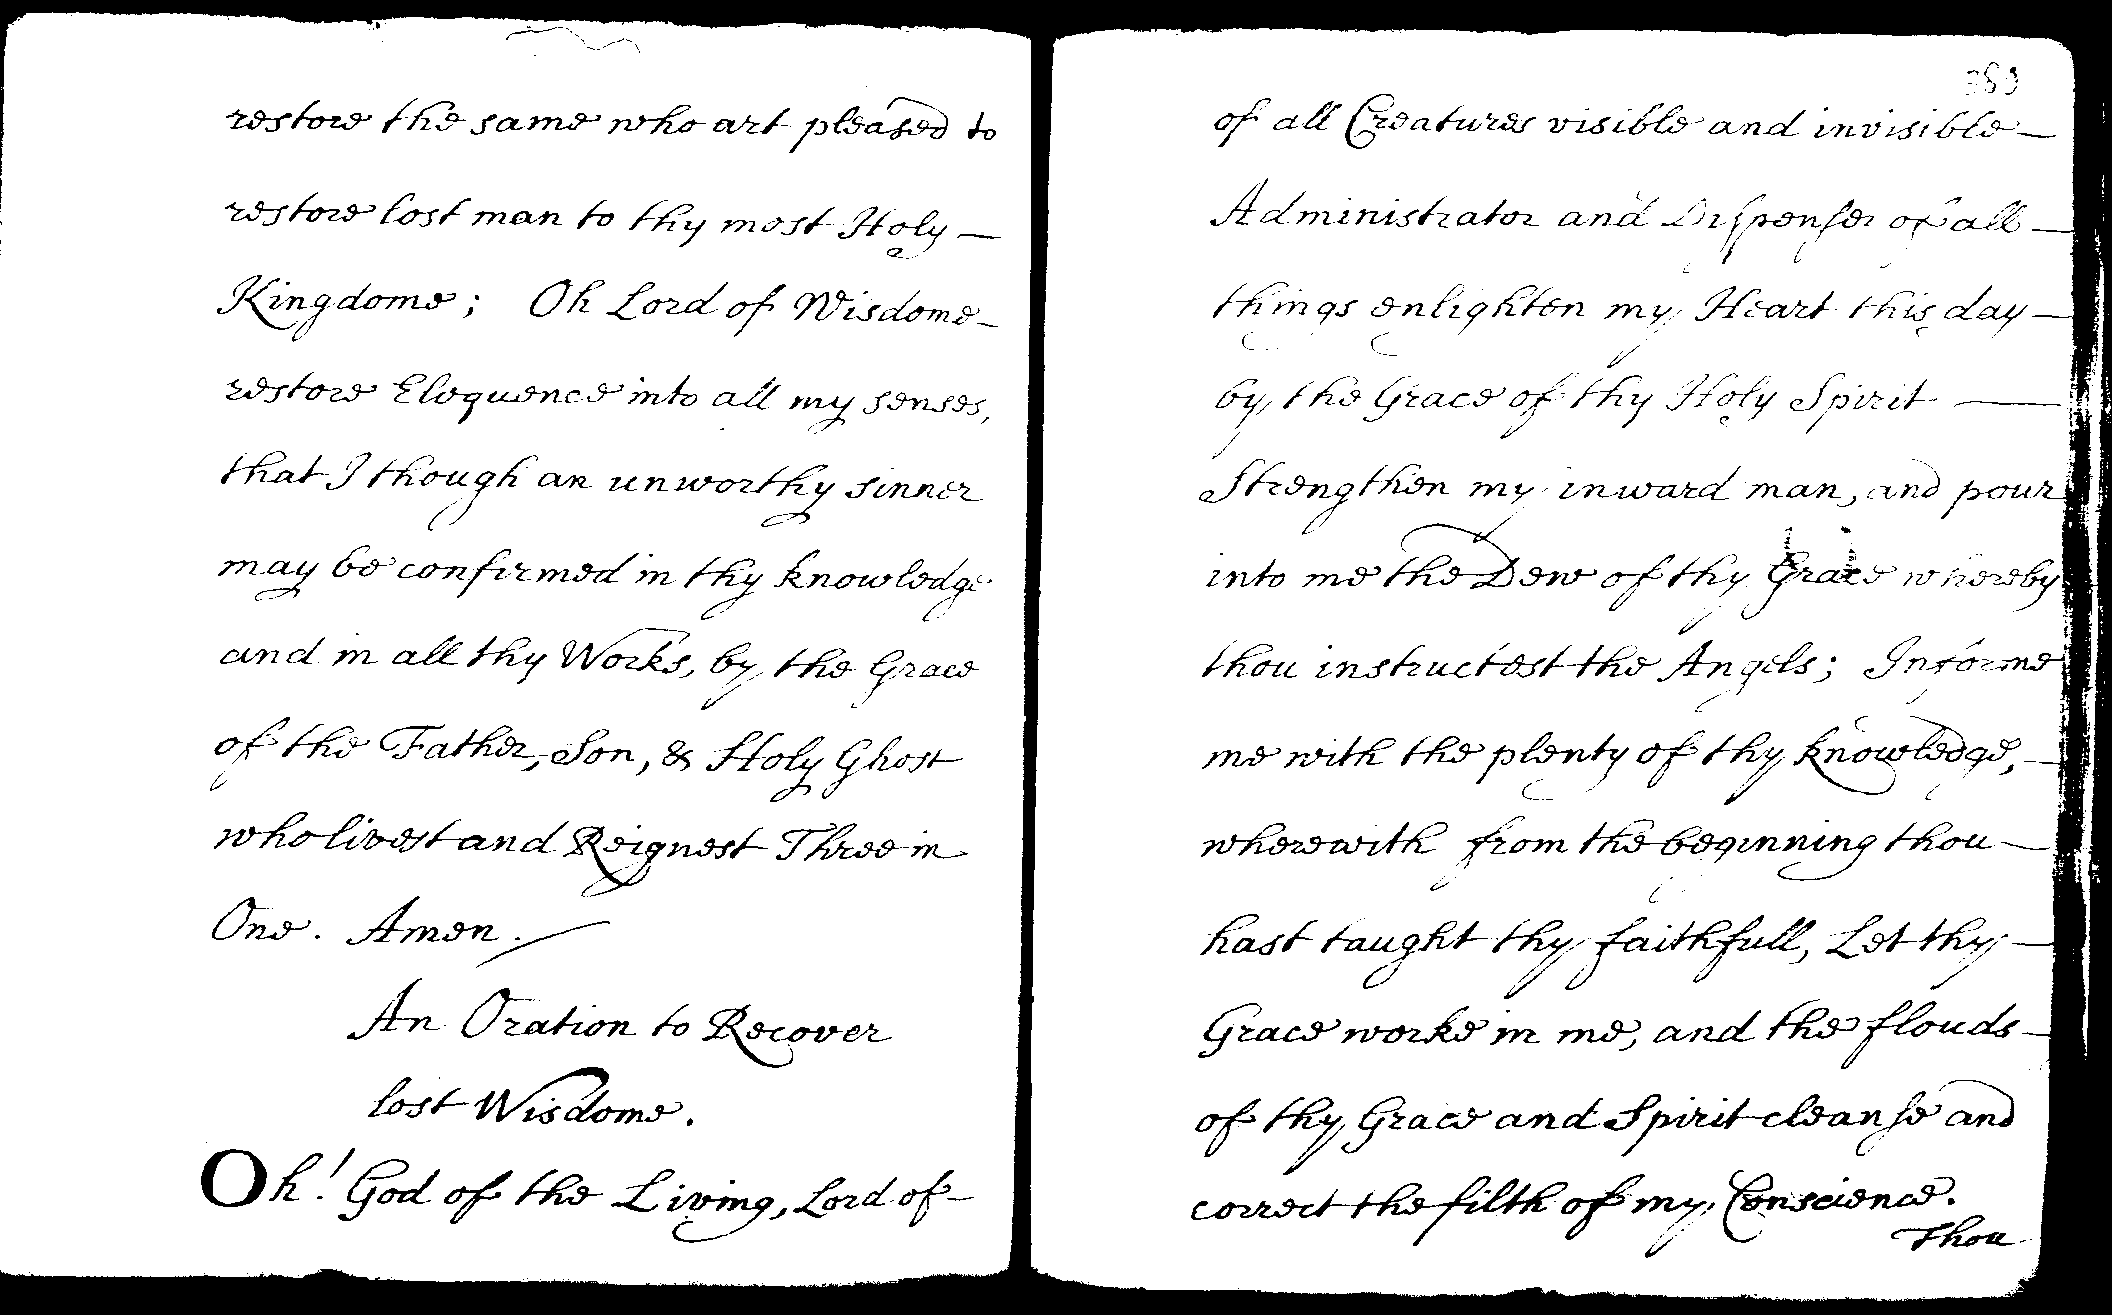 restore the same who art pleased to
restore lost man to thy most Holy —
Kingdome; Oh Lord of Wisdome —
restore Eloquence into all my senses,
that I though an unworthy sinner
may be confirmed in thy knowledge
and in all thy Works, by the Grace
of the Father, Son, & Holy Ghost
who livest and Reignest Three in
One. Amen.
An Oration to Recover
lost Wisdome.
Oh! God of the Living, Lord of —
of all Creatures visible and invisible —
Administrator and Dispenser of all —
things enlighten my Heart this day —
by the Grace of thy Holy Spirit —
Strengthen my inward man, and pour
into me the Dew of thy Grace whereby
thou instructest the Angels; Informe
me with the plenty of thy knowledge, —
wherewith from the beginning thou —
hast taught thy faithfull, Let thy —
Grace worke in me, and the flouds —
of thy Grace and Spirit cleanse and
correct the filth of my Conscience.
Thou